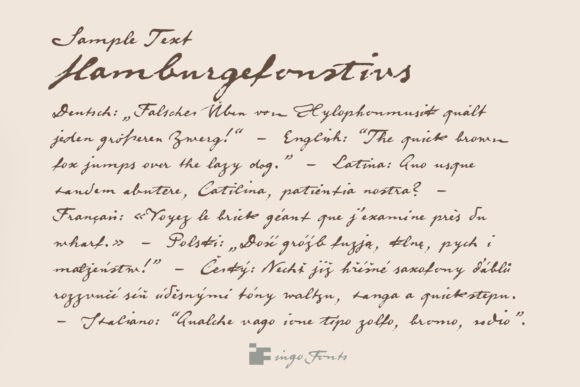 Sample Text
Hamburgefonstivs
Deutsch: „Falsches Üben von Xylophonmusik quält
jeden größeren Zwerg!“ – English: “The quick brown
fox jumps over the lazy dog.” – Latina: Quo usque
tandem abutere, Catilina, patientia nostra? –
Français: «Voyez le brick géant que j'examine près du
wharf.» – Polski: „Dość gróźb fuzją, klnę, pych i
małżeństw!” – Český: Nechť již hříšné saxofony ďáblů
rozzvučí síň úděsnými tóny waltzu, tanga a quickstepu.
– Italiano: “Qualche vago ione tipo zolfo, bromo, sodio”.
ingoFonts